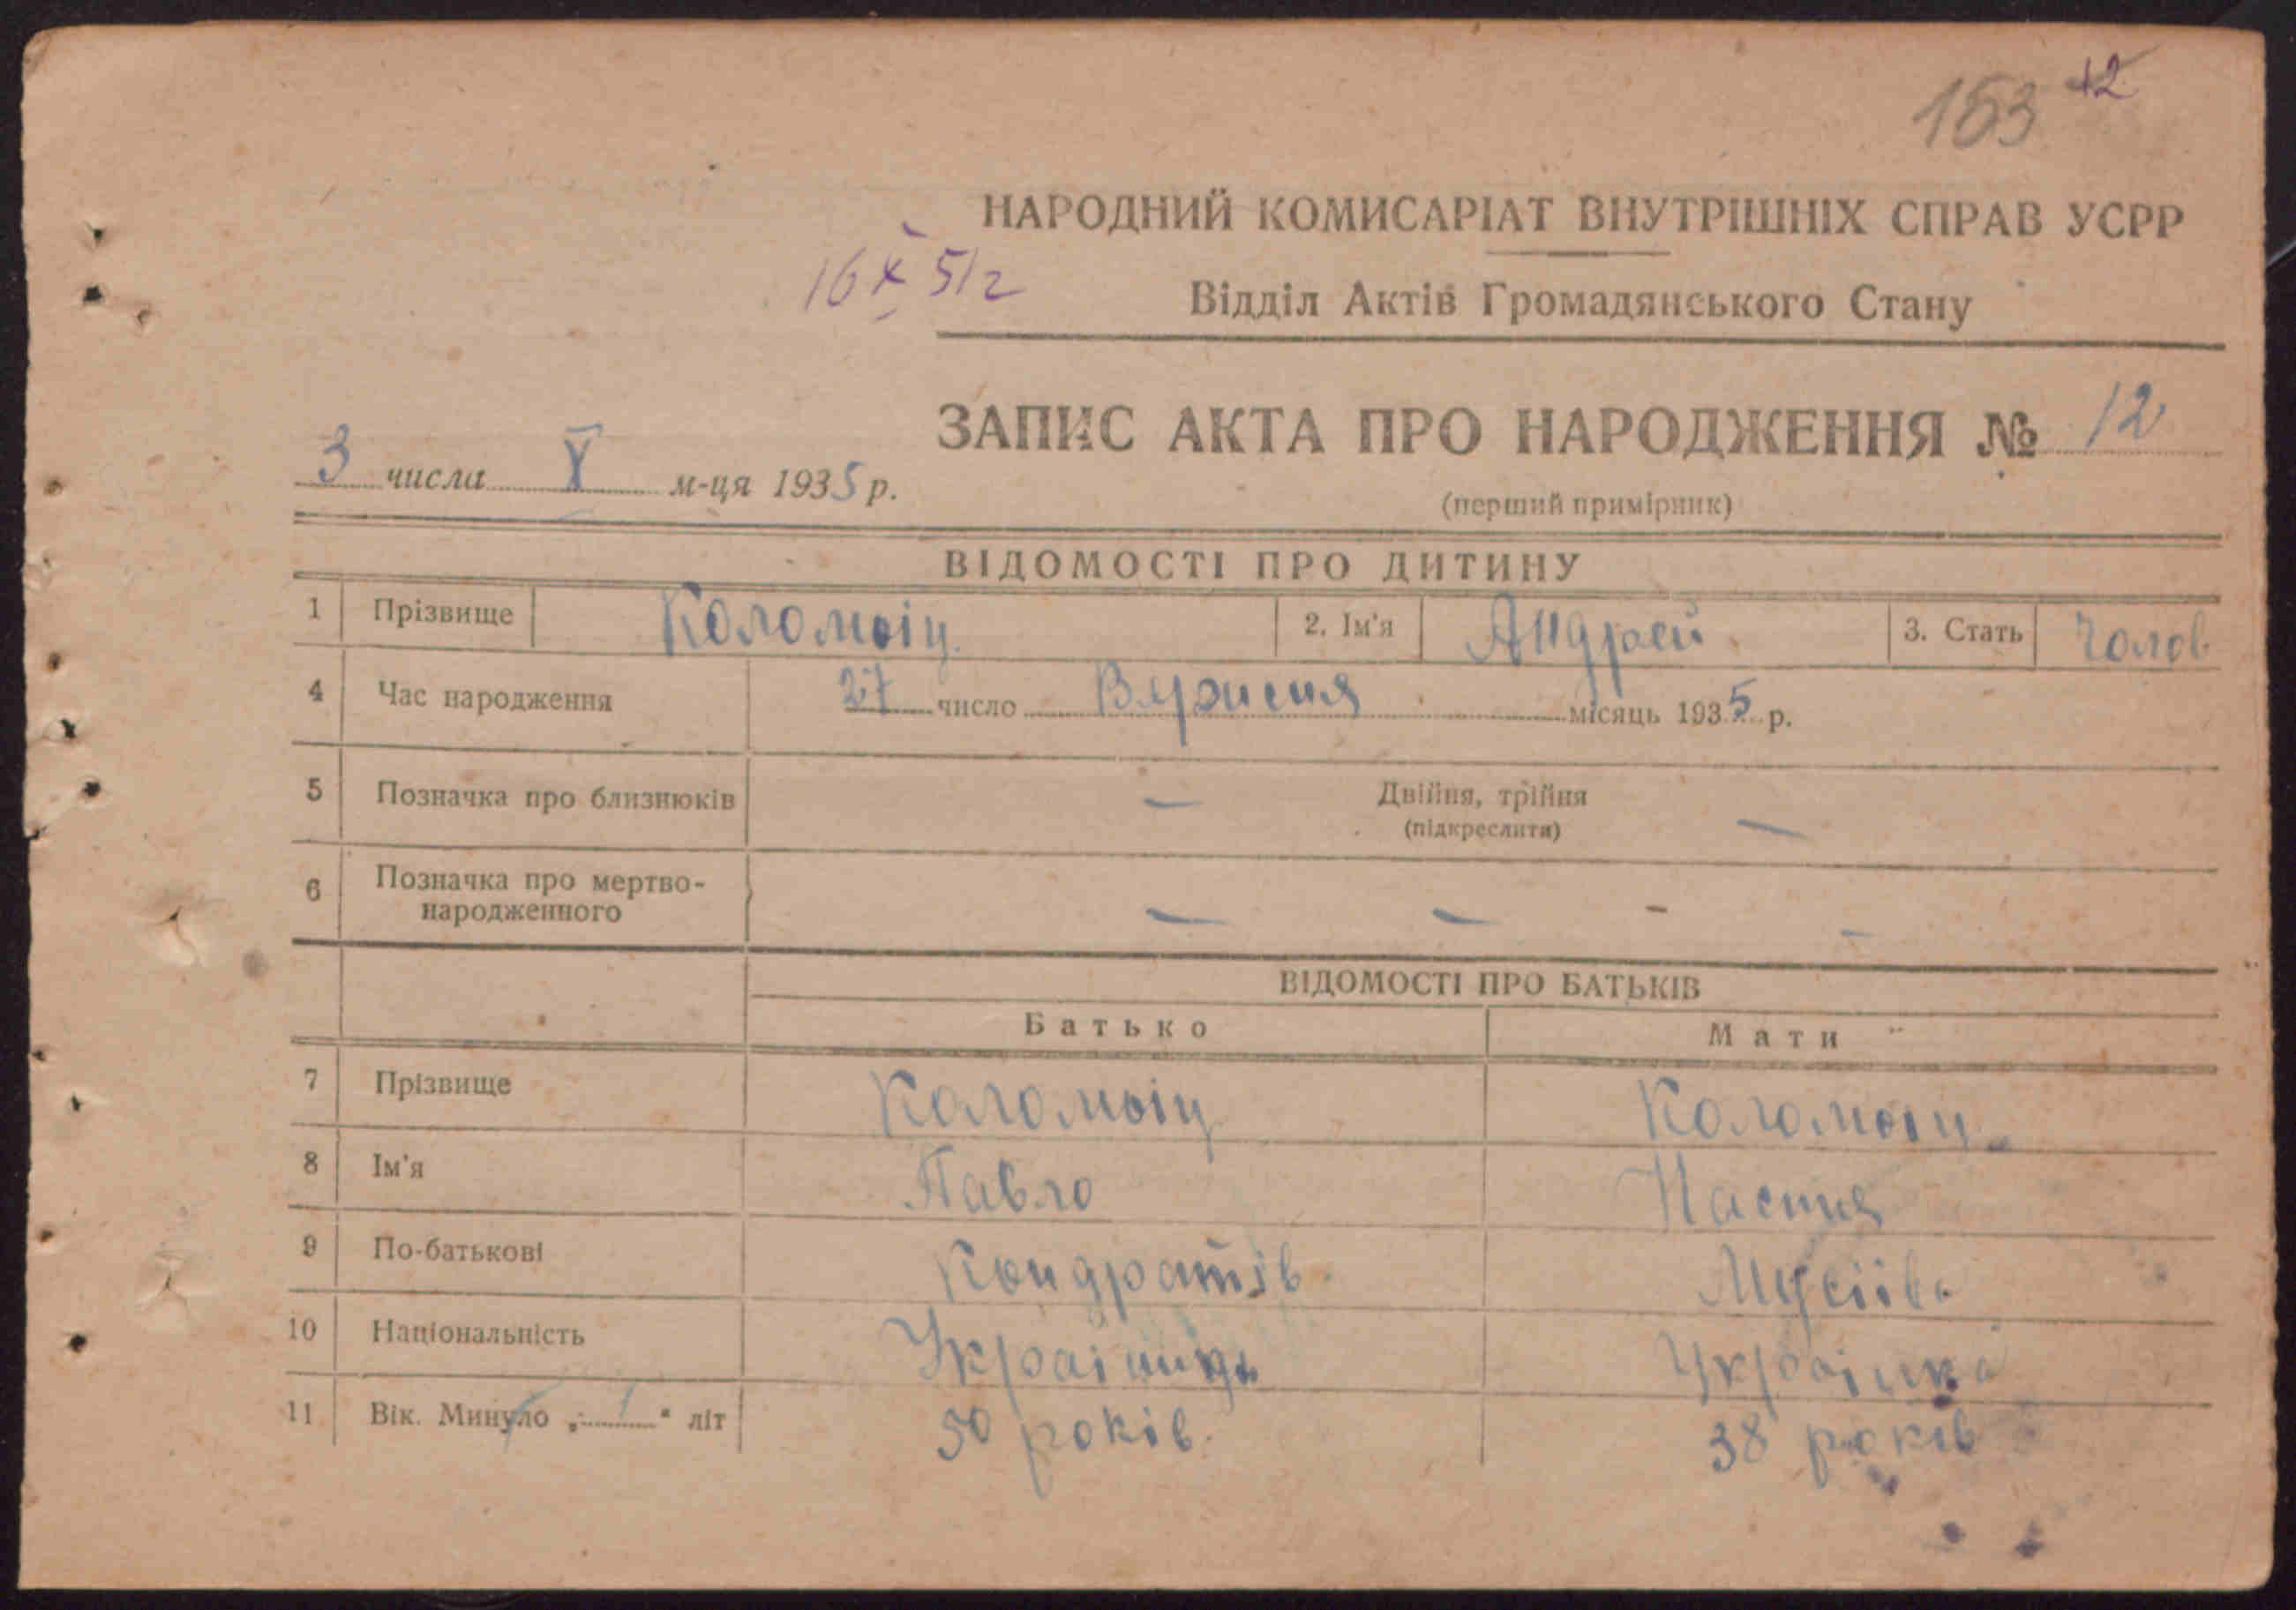 153 12
НАРОДНИЙ КОМИСАРІАТ ВНУТРІШНІХ СПРАВ УСРР
16 X 51 г
Відділ Актів Громадянського Стану
ЗАПИС АКТА ПРО НАРОДЖЕННЯ № 12
3 числа X м-ця 1935 р.
(перший примірник)
ВІДОМОСТІ ПРО ДИТИНУ
1 Прізвище Коломоїц 2. Ім'я Андрей 3. Стать Чолов
4 Час народження 27 число Вересня місяць 1935 р.
5 Позначка про близнюків — Двійня, трійня —
(підкреслити)
6 Позначка про мертво-
народженного — — - -
ВІДОМОСТІ ПРО БАТЬКІВ
Батько Мати
7 Прізвище Коломоїц Коломоїц
8 Ім'я Павло Настя
9 По-батькові Кондратів Мусіїв
10 Національність Українець Українка
11 Вік. Минуло „......“ літ 50 років. 38 років